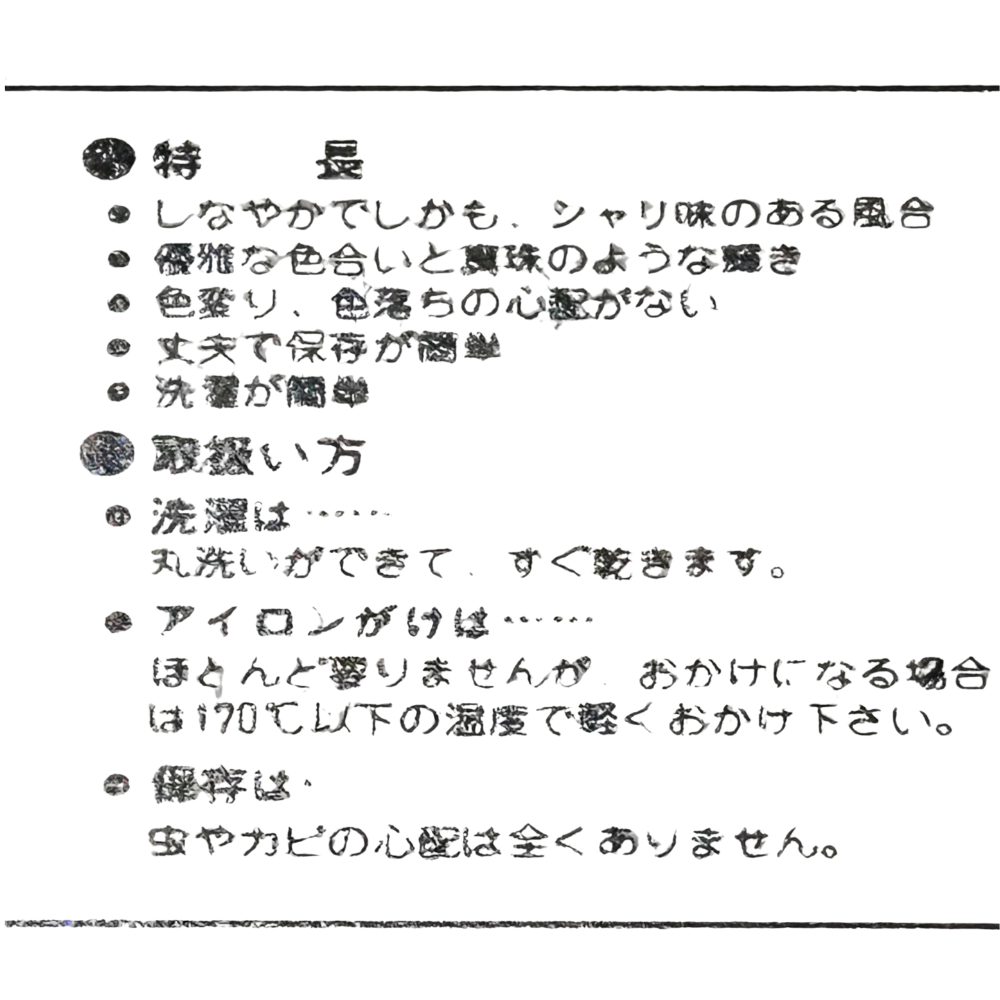 ●特　　長
●しなやかでしかも、シャリ味のある風合
●優雅な色合いと真珠のような輝き
●色変り、色落ちの心配がない
●丈夫で保存が簡単
●洗濯が簡単
●取扱い方
●洗濯は……
丸洗いができて、すぐ乾きます。
●アイロンがけは……
ほとんど要りませんが、おかけになる場合
は170℃以下の温度で軽くおかけ下さい。
●保存は・
虫やカビの心配は全くありません。